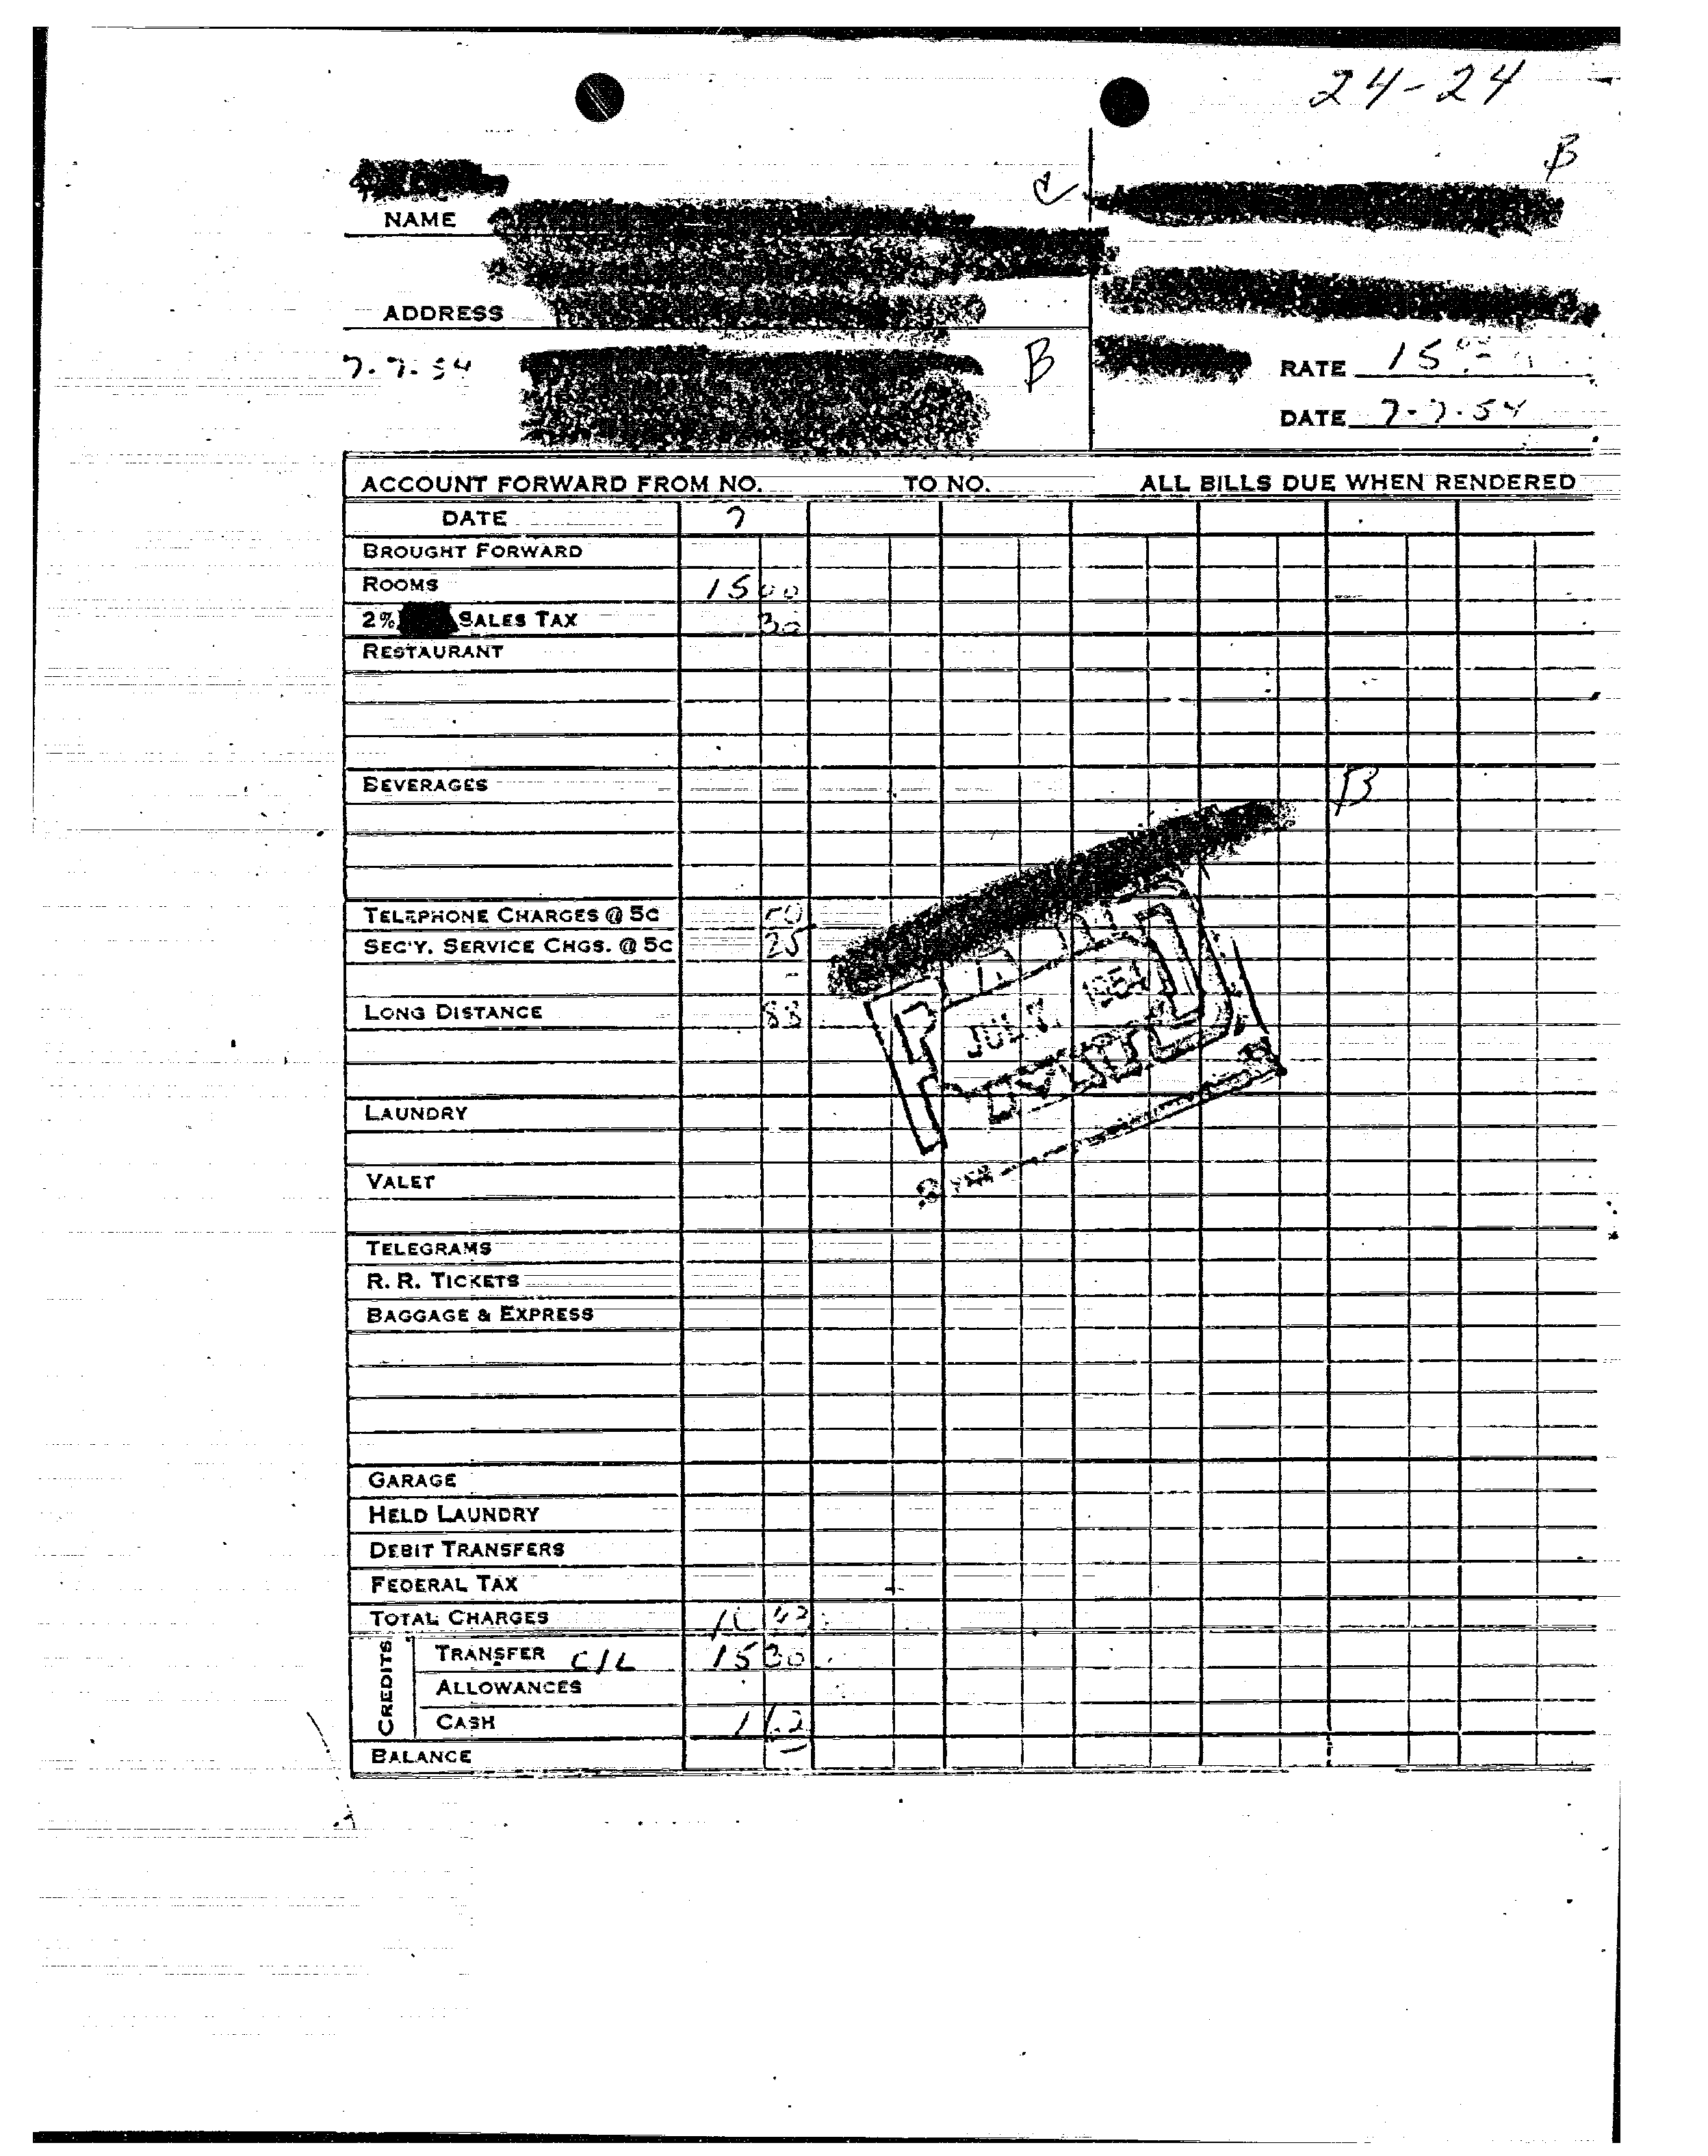 24-24
B
NAME
ADDRESS
7.7.54 B
RATE 15
DATE 7.7.54
ACCOUNT FORWARD FROM NO. TO NO. ALL BILLS DUE WHEN RENDERED
DATE 7
BROUGHT FORWARD
ROOMS 15 00
2% SALES TAX 30
RESTAURANT
BEVERAGES
B
TELEPHONE CHARGES @ 5C
SEC'Y. SERVICE CHGS. @ 5C 25
LONG DISTANCE 88
JUL 7 1954
LAUNDRY
VALET
TELEGRAMS
R. R. TICKETS
BAGGAGE & EXPRESS
GARAGE
HELD LAUNDRY
DEBIT TRANSFERS
FEDERAL TAX
TOTAL CHARGES
CREDITS
TRANSFER C/L 15 30
ALLOWANCES
CASH
BALANCE